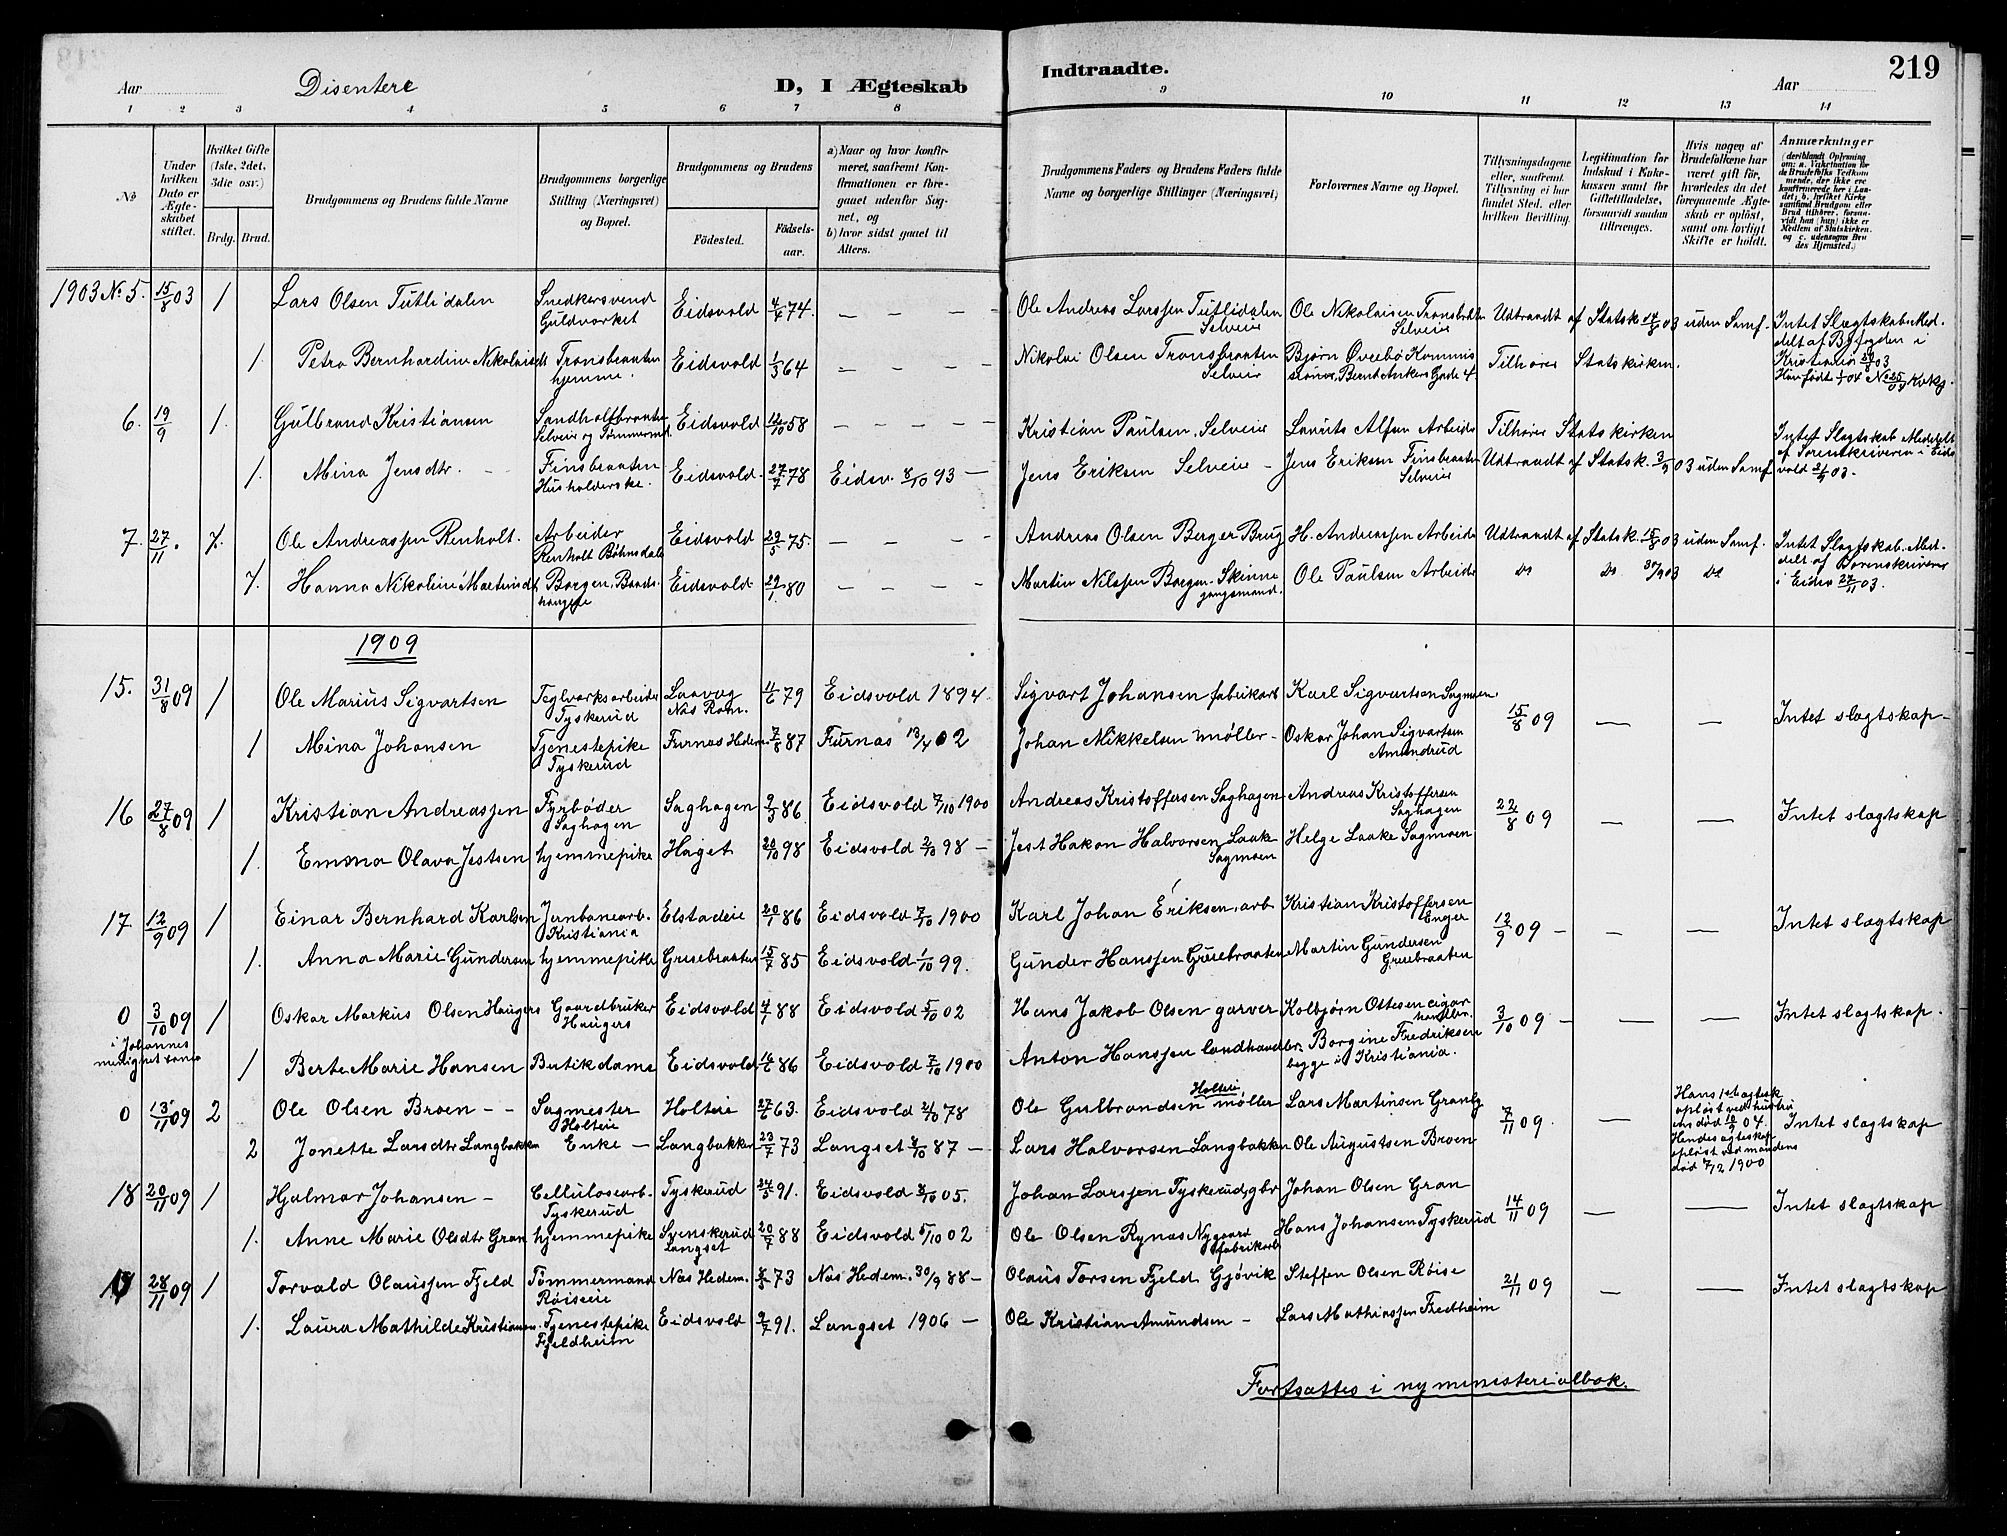 219
Disentere
Aar
D, I Ægteskab
Indtraadte.
Aar
1 2 3 4 5 6 7 8 9 10 11 12 13 14
No
Under hvilken Dato er Ægteskabet stiftet.
Hvilket Gifte (1ste, 2det, 3die osv.)
Brdg. Brud.
Brudgommens og Brudens fulde Navne
Brudgommens borgerlige Stilling (Næringsvei) og Bopæl.
Brudgommens og Brudens
Födested.
Födselsaar.
a) Naar og hvor konfirmeret, saafremt Konfirmationen er foregaaet udenfor Sognet, og
b) hvor sidst gaaet til Alters.
Brudgommens Faders og Brudens Faders fulde Navne og borgerlige Stillinger (Næringsvei)
Forlovernes Navne og Bopæl.
Tillysningsdagene eller, saafremt Tillysning ei har fundet Sted, efter hvilken Bevilling.
Legitimation for Indskud i Enkekassen samt for Giftetilladelse, forsaavidt saadan tiltrænges.
Hvis nogen af Brudefolkene har været gift för, hvorledes da det foregaaende Ægteskab er oplöst, samt om lovligt Skifte er holdt.
Anmærkninger
(deriblandt Oplysning om: a. Vakcination for de Brudefolks Vedkommende, der ikke ere konfirmerede her i Landet; b. hvilket Kirkesamfund Brudgom eller Brud tilhörer, forsaavidt han (hun) ikke er Medlem af Statskirken, og c. udensogns Brudes Hjemsted.)
1903 No 5. 15/8 03 1 Lars Olsen Tutlidalen Snedkersvend Guldværket Eidsvold 4/4 74. — — — — Ole Andreas Larssen Tutlidalen Selveier Ole Nikolaisen Tronsbraaten Selveier Udtraadt af Statsk. 14/8 03 uden Samf. Intet Slægtskab. Meddelt af Byfogden i
1. Petra Bernhardine Nikolaisdt Tronsbraaten hjemme. Eidsvold 1/3 64 — — — — Nikolai Olsen Tronsbraaten Selveier Bjørn Øvrebö Kommissionær, Bernt Ankers Gade 4. Tilhører Statskirken. Kristiania 29/8 03
6. 19/9 1. Gulbrand Kristiansen Sandholtbraaten Selveier og Tømmermd. Eidsvold 12/10 58 — — — — Kristian Paulsen, Selveier Lauritz Alfsen Arbeider Tilhører Statskirken Intet Slægtskab Meddelt af Sorenskriveren i Eidsvold 2/9 03.
1. Mina Jensdtr. Finsbraaten Husholderske. Eidsvold. 27/7 78 Eidsv. 8/10 93 — Jens Eriksen Selveier - Jens Eriksen Finsbraaten Selveier Udtraadt af Statsk. 3/9 03 uden Samf
7. 27/11. 1. Ole Andreassen Renholt. Arbeider Renholt Böhnsdalen Eidsvold 29/5 75. — — — Andreas Olsen Berger Brug H. Andreassen Arbeider Udtraadt af Statsk. 15/8 03 uden Samf. Intet Slægtskab. Meddelt af Sorenskriveren i Eidsv 27/11 03.
1. Hanna Nikoline Martinsdt. Borgen, Baands- Eidsvold 29/1 80 — — — — Martin Nilssen Borgen. Skinnegangsmand. Ole Paulsen Arbeider do do do
1909
15. 31/8 09 1 Ole Marius Sigvartsen Teglværksarbeider Tyskerud Laavag Næs Rom. 11/6 79 Eidsvold 1894. Sigvart Johansen fabrikarb Karl Sigvartsen Sagmoen 15/8 09 — — Intet slægtskap -
1 Mina Johansen Tjenestepike Tyskerud Furnæs Hedem. 7/8 87 Furnæs 13/4 02 Johan Mikkelsen møller - Oskar Johan Sigvartsen Amundrud
16 27/8 09 1 Kristian Andreassen Fyrbøder Saghagen Saghagen 9/3 86. Eidsvold 7/10 1900 Andreas Kristoffersen Saghagen Andreas Kristoffersen Saghagen 22/8 09 — — Intet slægtskap
1. Emma Olava Jestsen hjemmepike Haget 20/10 98 Eidsvold 2/10 98 - Jest Hakon Halvorsen Laake Sagmoen Helge Laake Sagmoen
17 12/9 09 1 Einar Bernhard Karlsen Jernbanearb. Kristiania Elstadeie 20/1 86 Eidsvold 7/10 1900 Karl Johan Eriksen, arb Kristian Kristoffersen Enger 12/9 09 - — — Intet slægtskap
1. Anna Marie Gundersen hjemmepike Gruebraaten 15/7 85 Eidsvold 1/10 99. Gunder Hanssen Gruebraaten Martin Gundersen Gruebraaten
0 3/10 09 1 Oskar Markus Olsen Haugers Gaardbruker Haugers Eidsvold 4/1 88 Eidsvold 5/10 02 Hans Jakob Olsen garver Kolbjørn Ottesen cigarhandler. 3/10 09 - — — Intet slægtskap.
i Johannes menighet
1 Berte Marie Hansen Butikdame Eidsvold 14/6 86 Eidsvold 7/10 1900 Anton Hanssen landhandler. Borgine Fredriksen begge i Kristiania.
0 13/11 09 2 Ole Olsen Broen - - Sagmester Holteie Holteie 27/6 63. Eidsvold 2/10 78 Ole Gulbrandsen Holteie møller Lars Martinsen Granly 7/11 09. — Hans 1ste ægtesk. opløst ved hustruens død 10/9 04. Hendes ægteskap opløst ved mandens død 7/12 1900 Intet slægtskap
2 Jonette Larsdtr Langbakken Enke — Langbakken 23/7 73 Langset 2/10 87 — Lars Halvorsen Langbakken Ole Augustsen Broen
18 20/11 09 1 Hjalmar Johansen - Cellulosearb. Tyskerud Tyskerud 24/5 91. Eidsvold 8/10 05. Johan Larssen Tyskerud, gbr Johan Olsen Gran 14/11 09 — — Intet slægtskap
1. Anne Marie Olsdtr Gran hjemmepike Svenskerud Langset 20/7 88 Eidsvold 5/10 02 Ole Olsen Rynæs Nygaard fabrikarb Hans Johansen Tyskerud
28/11 09 1 Torvald Olaussen Fjeld Tömmermand Röiseie Næs Hedem. 73 Næs Hedem. 30/9 88 - Olaus Torsen Fjeld Gjøvik Steffen Olsen Röise 21/11 09 — — Intet slægtskap
1. Laura Mathilde Kristiansen. Tjenestepike Fjeldheim Eidsvold 9/7 91. Langset 1906 — Ole Kristian Amundsen - Lars Mathiassen Fredheim
Fortsættes i ny ministerialbok.